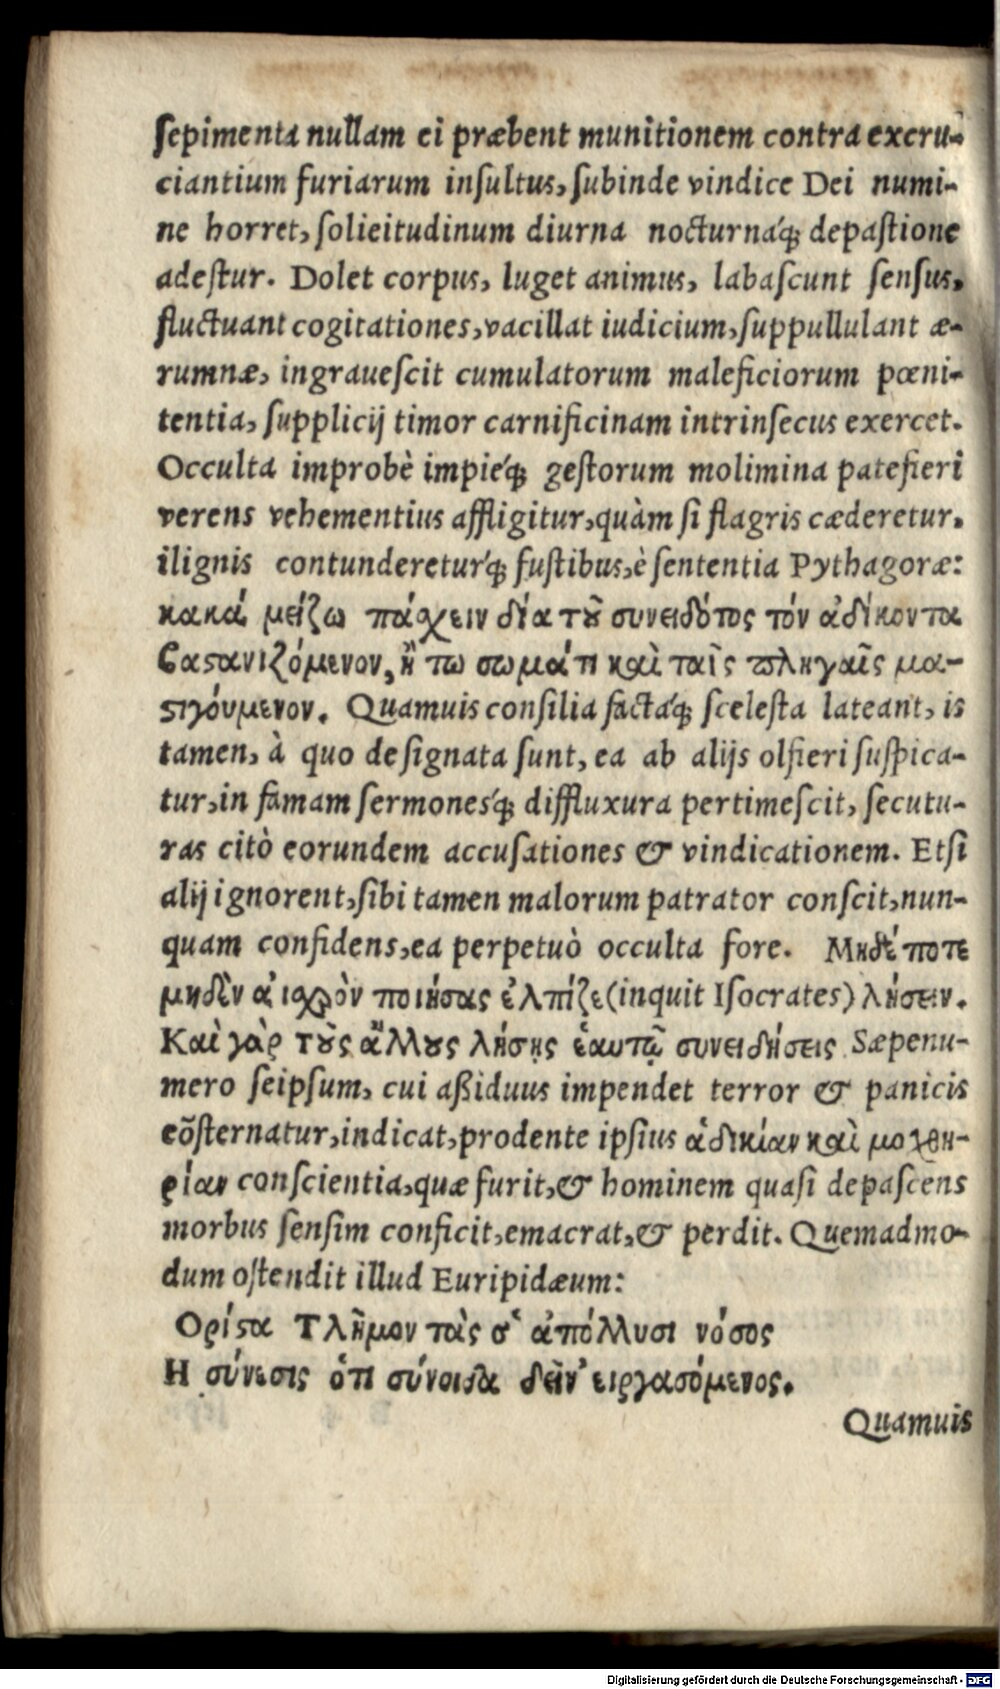 sepimenta nullam ei præbent munitionem contra excru-
ciantium furiarum insultus, subinde vindice Dei numi-
ne horret, solicitudinum diurna nocturnáq; depastione
adestur. Dolet corpus, luget animus, labascunt sensus,
fluctuant cogitationes, vacillat iudicium, suppullulant æ-
rumnæ, ingrauescit cumulatorum maleficiorum pœni-
tentia, supplicij timor carnificinam intrinsecus exercet.
Occulta improbè impiéq; gestorum molimina patefieri
verens vehementius affligitur, quàm si flagris cæderetur.
ilignis contundereturq́; fustibus, è sententia Pythagoræ:
κακά μείζω πάχειν δία τȣ͂ συνειδότος τόν ἀδίκοντα
ϐαϛανιζόμενον, ἢ τω σωμάτι καὶ ταῖς πληγαῖς μα-
ϛιγόυμενον. Quamuis consilia factáq; scelesta lateant, is
tamen, à quo designata sunt, ea ab alijs olfieri suspica-
tur, in famam sermonesq́; diffluxura pertimescit, secutu-
ras citò eorundem accusationes & vindicationem. Etsi
alij ignorent, sibi tamen malorum patrator conscit, nun-
quam confidens, ea perpetuò occulta fore. Μηδέποτε
μηδὲν ἀιχρὸν ποιήσας ἐλπίζε (inquit Isocrates) λήσειν.
Καὶ γὰρ τȣ̀ς ἄλλȣς λήσῃς ἑαυτῷ συνειδήσεις Sæpenu-
mero seipsum, cui aßiduus impendet terror & panicis
cõsternatur, indicat, prodente ipsius ἀδικίαν καὶ μοχθη-
ρίαν conscientia, quæ furit, & hominem quasi depascens
morbus sensim conficit, emacrat, & perdit. Quemadmo-
dum ostendit illud Euripidæum:
Ορίϛα Τλῆμον τὰς σ' ἀπόλλυσι νόσος
Η σύνεσις ὁτι σύνοιδα δεῖν' ειργασόμενος.
Quamuis
Digitalisierung gefördert durch die Deutsche Forschungsgemeinschaft - DFG